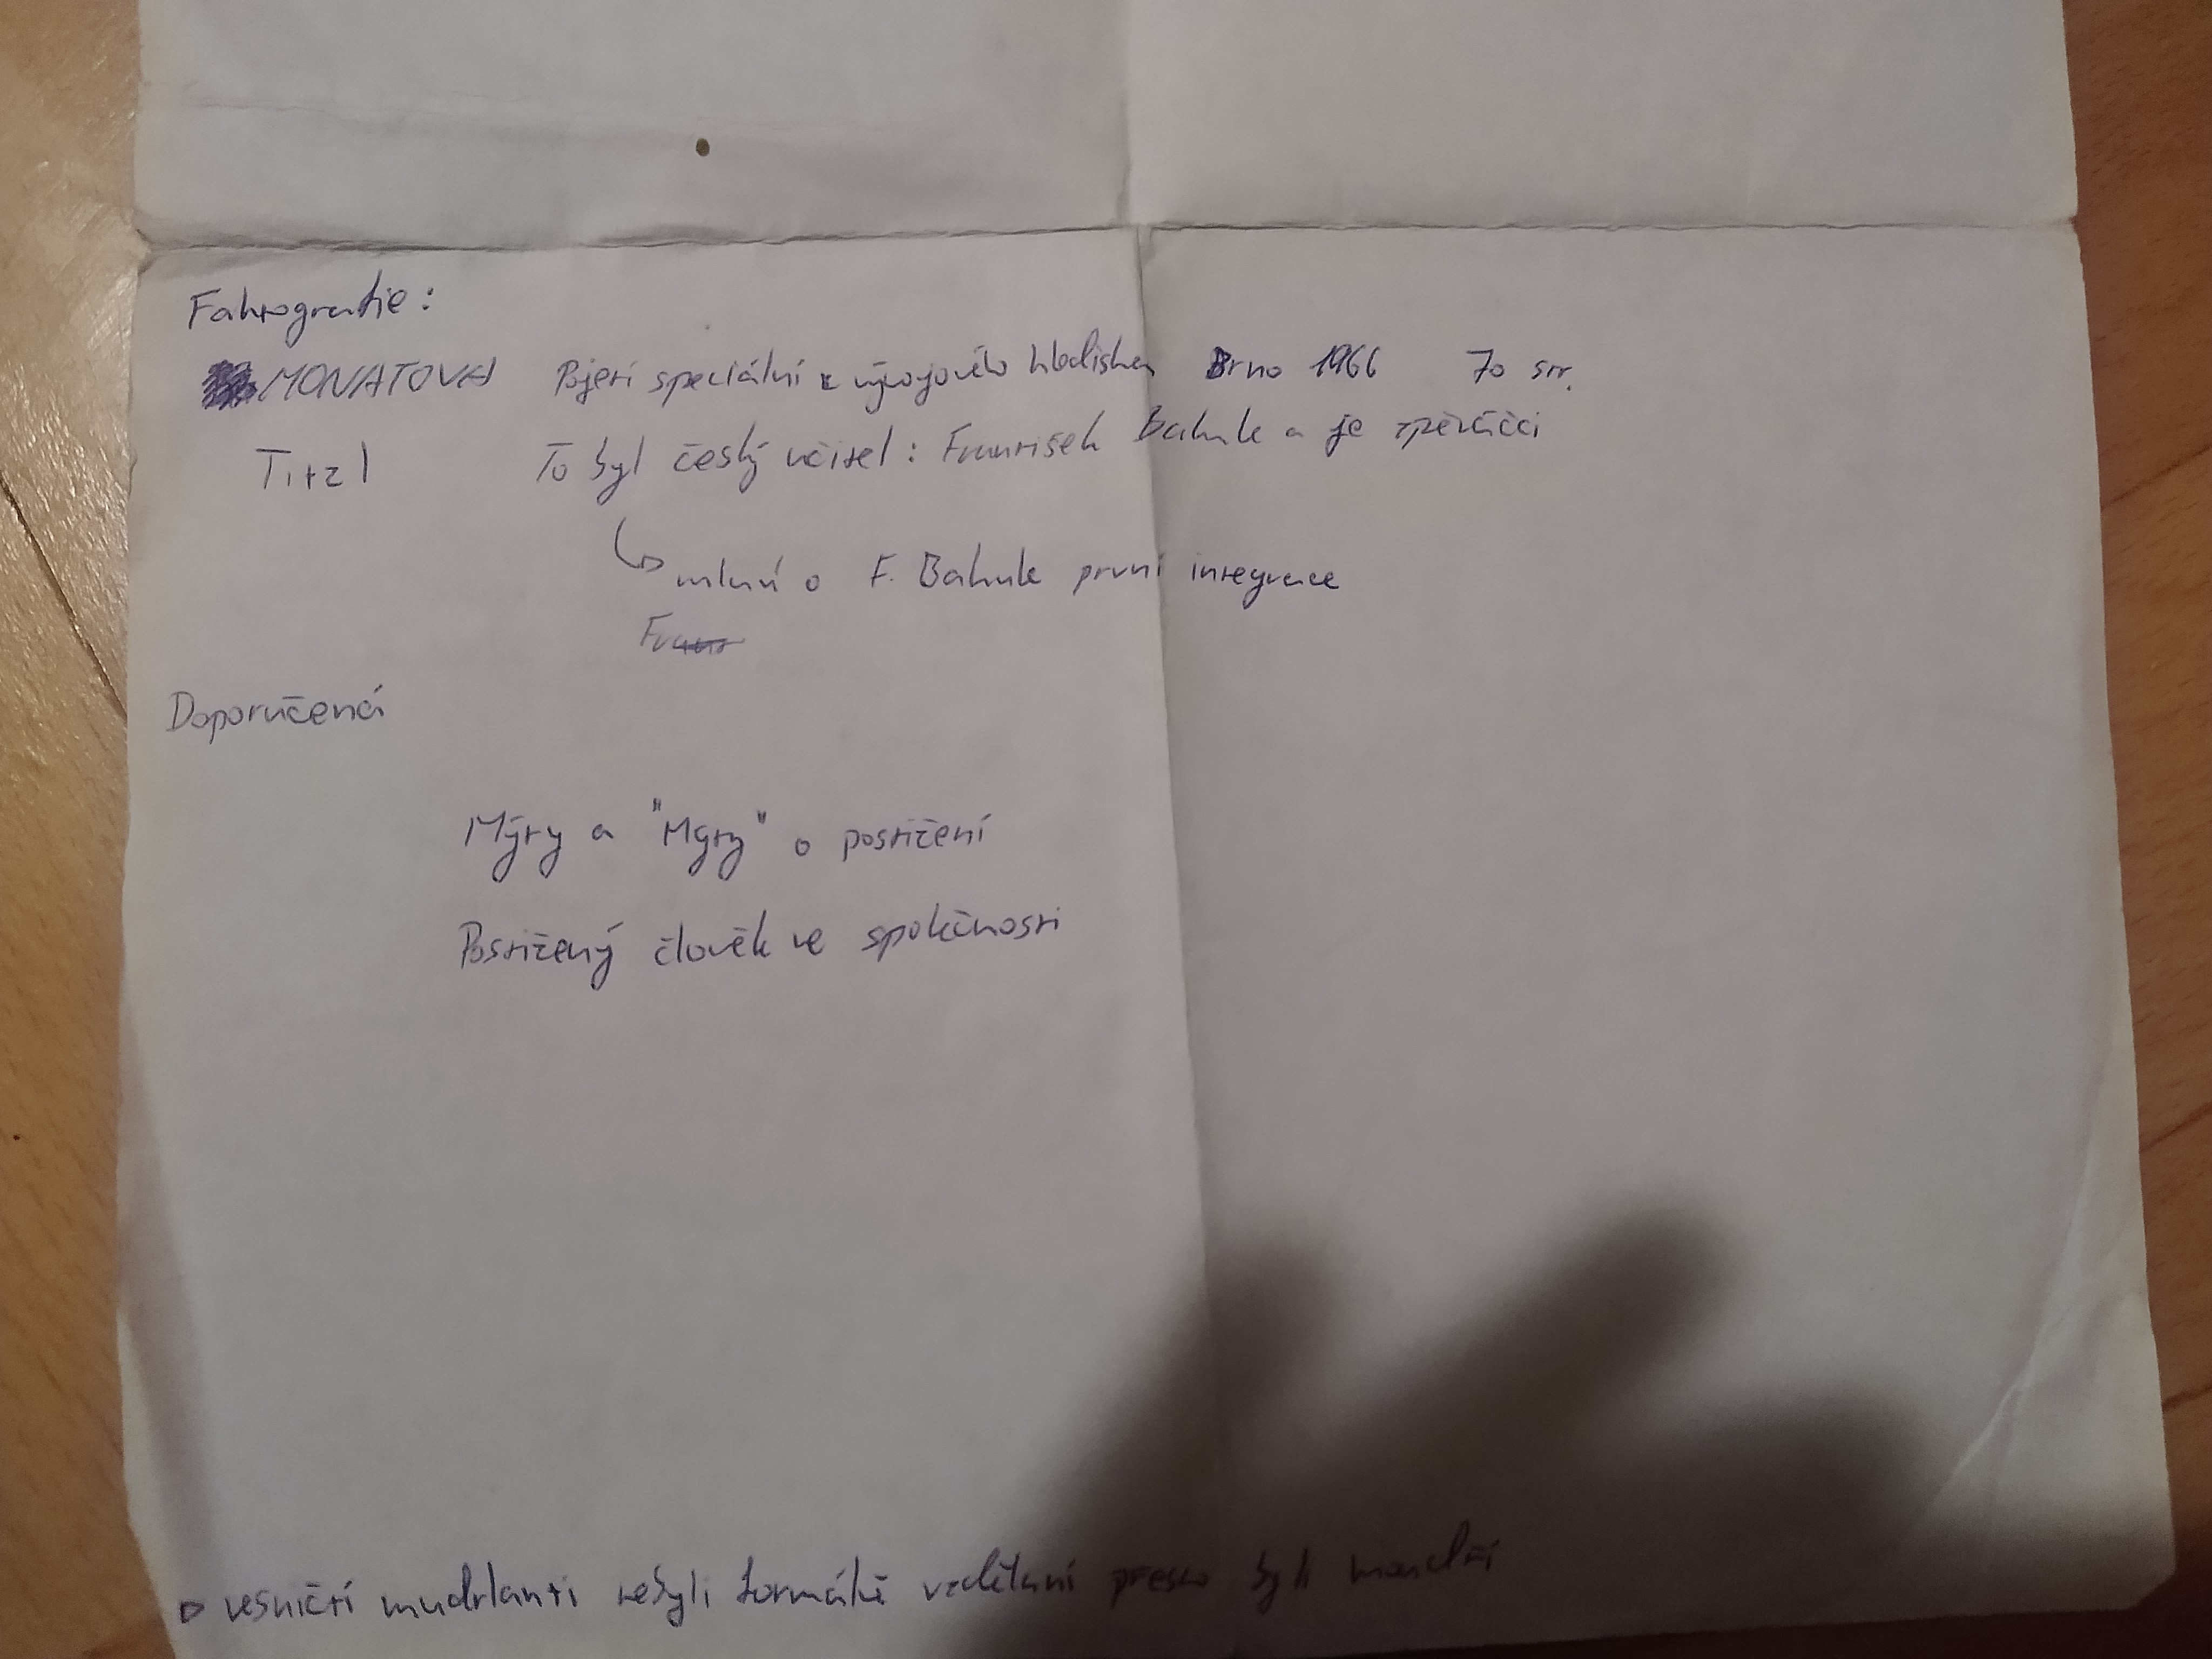 Faktografie:
MONATOVA Pojetí speciální z vývojového hlediska Brno 1966 70 str.
Titzl To byl český učitel: František Bakule a je zpěváčci
mluví o F. Bakule první integrace
Doporučená
Mýty a "Mýty" o postižení
Postižený člověk ve společnosti
vesničtí mudrlanti nebyli formálně vzdělaní přesto byli moudří